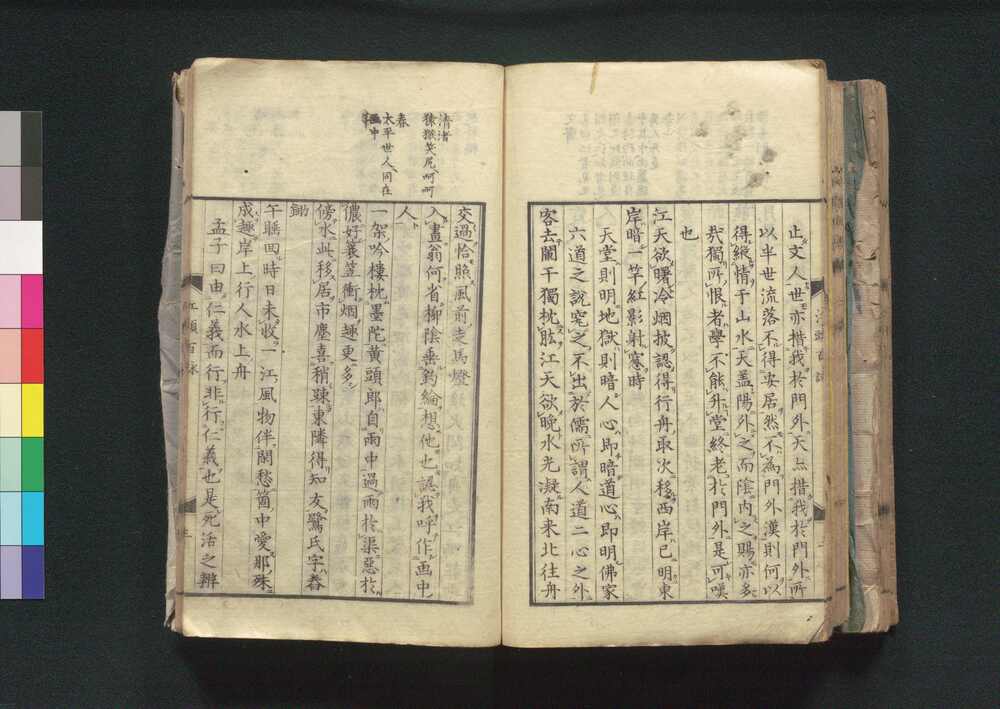 止文人世亦措我於門外天亦措我於門外所
以半世流落不得安居然不為門外漢則何以
得縦情于山水天盖陽外之而陰内之賜亦多
哉獨所恨者學不能升堂終老於門外是可嘆
也
江天欲曙冷烟披認得行舟取次移西岸已明東
岸暗一竿紅影射窓時
天堂則明地獄則暗人心即暗道心即明佛家
六道之説究之不出於儒所謂人道二心之外
客去闌干獨枕肱江天欲晩水光凝南来北往舟
交過恰照風前走馬燈
入畫翁何省柳陰垂釣綸想他也認我呼作画中
人
一架吟樓枕墨陀黄頭郎自雨中過雨於渠惡於
儂好蓑笠衝烟趣更多
傍水此移居市塵喜稍疎東隣得知友鷺氏字舂
鋤
午睡回時日未收一江風物伴閑愁箇中愛那殊
成趣岸上行人水上舟
孟子曰由仁義而行非行仁義也是死活之辨
清渚
猿猴笑尻呵呵
春
太平世人同在
画中
江頭百詠